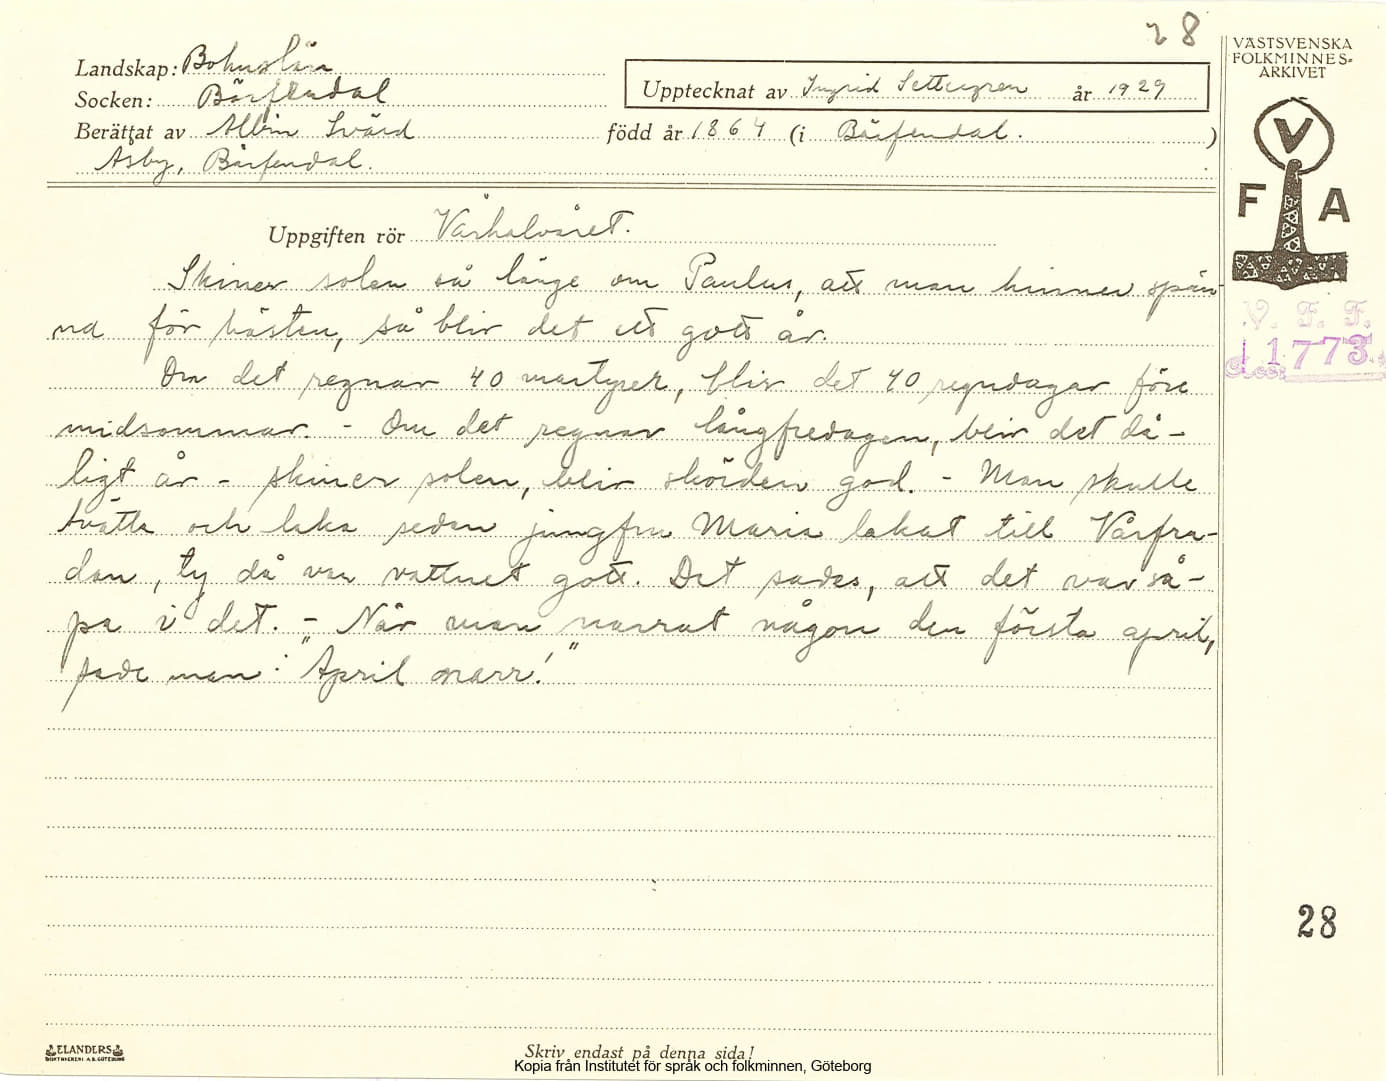 28
Landskap: Bohuslän
Socken: Bärfendal
Upptecknat av Ingrid Settergren år 1929
Berättat av Albin Svärd född år 1864 (i Bärfendal. )
Åsby, Bärfendal.
VÄSTSVENSKA
FOLKMINNES-
ARKIVET
V
F A
Uppgiften rör Vårhalvåret.
Skiner solen så länge om Paulus, att man hinner spän-
na för hästen, så blir det ett gott år.
Om det regnar 40 martyrer, blir det 40 regndagar före
midsommar. - Om det regnar långfredagen, blir det då-
ligt år - skiner solen, blir skörden god. - Man skulle
tvätta och laka sedan jungfru Maria lakat till Vårfru-
dan, ty då var vattnet gott. Det sades, att det var så-
pa i det. - När man narrat någon den första april,
sade man: "April narr!"
V. F. F.
Acc. 1773
28
ELANDERS
BOKTRYCKERI A.B. GÖTEBORG
Skriv endast på denna sida!
Kopia från Institutet för språk och folkminnen, Göteborg